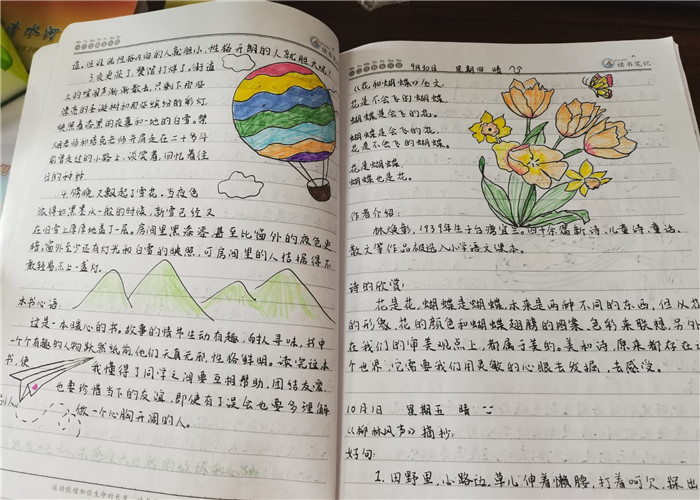 读书笔记
道,但没说性格内向的人就胆小,性格开朗的人就胆大呀?
3.夜更深了,餐馆打烊了,街道
上的喧闹声渐渐散去,只剩下那些
漂亮的圣诞树和那些缤纷的彩灯,
映照着漆黑的夜幕和一地的白雪,樊
前曾走过的小路上,谈笑着,回忆着往
日的种种
4.傍晚,又飘起了雪花,当夜色
浓得如墨染一般的时候,新雪已经又
在旧雪上厚厚地盖了一层,房间里黑漆漆,甚至比窗外的夜色更
暗,窗外至少还有灯光和白雪的映照,可房间里的人拮据得不
敢轻易点上一盏灯.
本书心语:
这是一本暖心的书,故事的情节生动有趣,耐人寻味,书中
一个个有趣的人物跃然纸前,他们天真无邪,性格鲜明。读完这本
书,使我懂得了同学之间要互相帮助,团结友爱,
也要珍惜当下的友谊,即使有了误会也要多理解
别人,做一个心胸开阔的人。
读书笔记
9月30日 星期四 晴
《花和蝴蝶》全文.
花是不会飞的蝴蝶,
蝴蝶是会飞的花。
蝴蝶是会飞的花,
花是不会飞的蝴蝶。
花是蝴蝶,
蝴蝶也是花。
作者介绍:
林焕彰,1939年生于台湾宜兰。四十余篇新诗、儿童诗、童话、
散文等作品被选入小学语文课本。
诗的欣赏:
花是花,蝴蝶是蝴蝶,本来是两种不同的东西,但从花
的形象,花的颜色和蝴蝶翅膀的图案,色彩来联想,另外
在我们的审美观点上,都属于美的。美和诗,原来都存在这
个世界,它需要我们用灵敏的心眼去发掘,去感受。
10月1日 星期五 晴
《柳林风声》摘抄:
好句:
1.田野里,小路边,草儿伸着懒腰,打着呵欠,探出